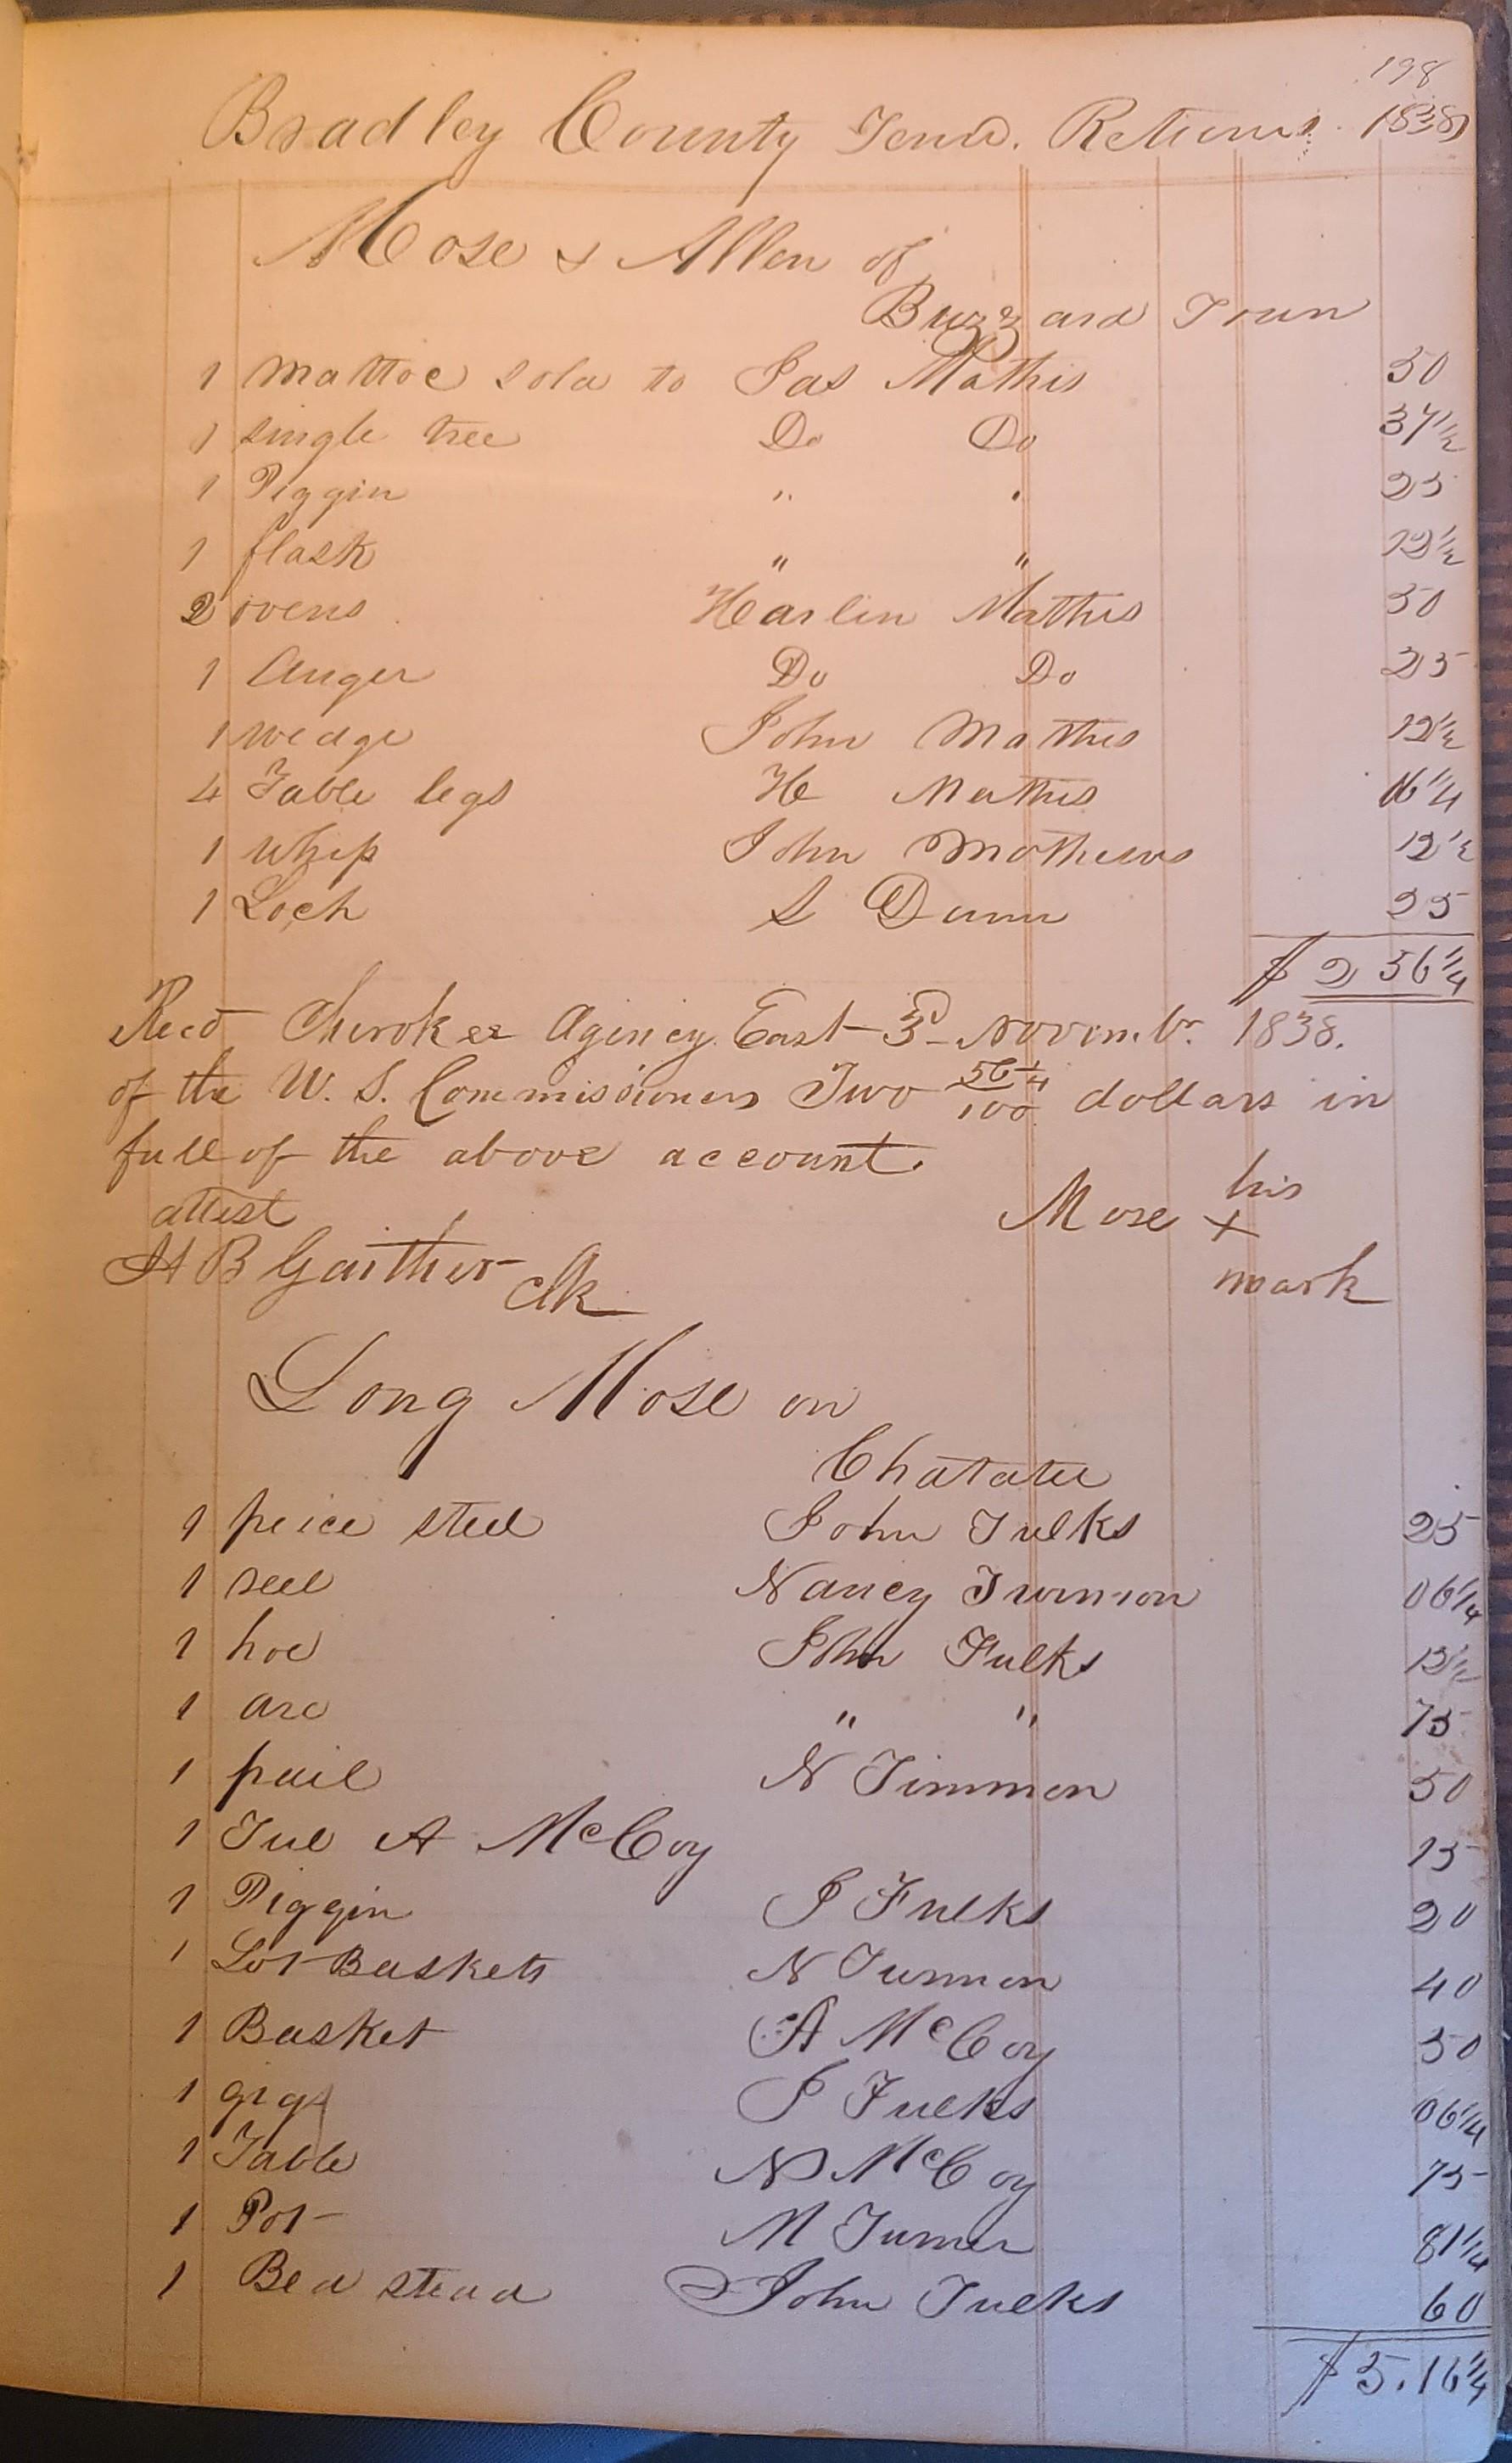 198
Bradley County Tenn. Returns 1838
Mose & Allen of
Buzzard Town
1 mattoc sold to Jas Mathis 50
1 single tree Do Do 37 1/2
1 Piggin " " 25
1 flask " " 12 1/2
2 ovens Harlin Mathis 50
1 Auger Do Do 25
1 wedge John Mathis 12 1/2
4 Table legs H Mathis 06 1/4
1 Whip John Mathews 12 1/2
1 Lock S Dunn 25
$ 2 56 1/4
Recd Cherokee Agincy East 3d Novembr 1838.
of the U. S. Commissioners Two 56 1/4/100 dollars in
full of the above account.
attest Mose his x mark
H B Gaither Clk
Long Mose on
Chatatee
1 peice steel John Fulks 25
1 reel Nancy 06 1/4
1 hoe John Fulks 12 1/2
1 axe " " 75
1 pail N Timmon 50
1 A McCoy 15
1 Piggin J Fulks 20
1 Lot Baskets N 40
1 Basket A McCoy 50
1 gigs J Fulks 06 1/4
1 Table N McCoy 75
1 Pot M Turner 81 1/4
1 Bed stead John Fulks 60
$ 5.16 1/4